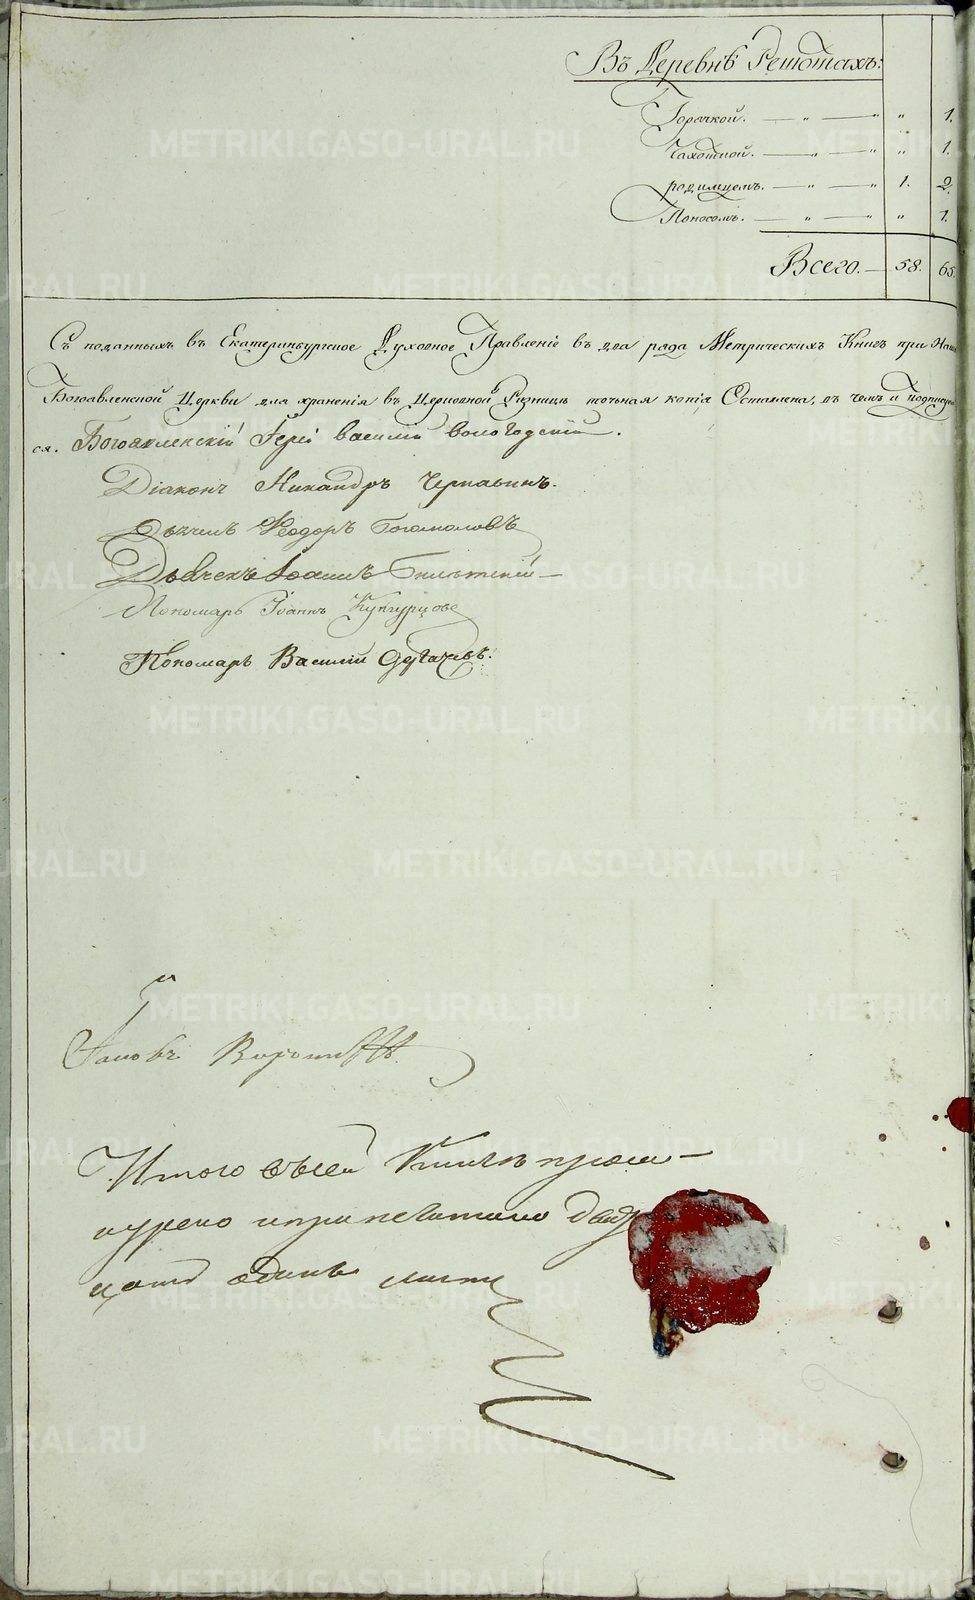 Въ Деревнѣ Решотахъ:
Горячкой. — „ — „ „ 1.
Чахоткой. — „ — „ „ 1.
родимцемъ. — „ — „ 1. 2.
Поносомъ. — „ — „ „ 1.
Всего. — 58. 65.
Съ поданныхъ въ Екатеринбургское Духовное Правленіе въ два ряда Метрическихъ Книгъ при Наш
Богоявленской Церкви для храненія въ Церковной Ризницѣ точная копія Оставлена, въ чемъ и подписуем
ся. Богоявленскій Іерей Василій Вологодскій.
Діаконъ Никандръ Чернавинъ.
Дьячекъ Феодоръ Богомоловъ
Дьячекъ Іоаннъ
Пономарь Іоаннъ Кунгурцовъ
Пономарь Василій
Іаковъ
Итого въ сей Книгѣ прошну
нурено и припечатано двад
цать одинъ листъ
METRIKI.GASO-URAL.RU